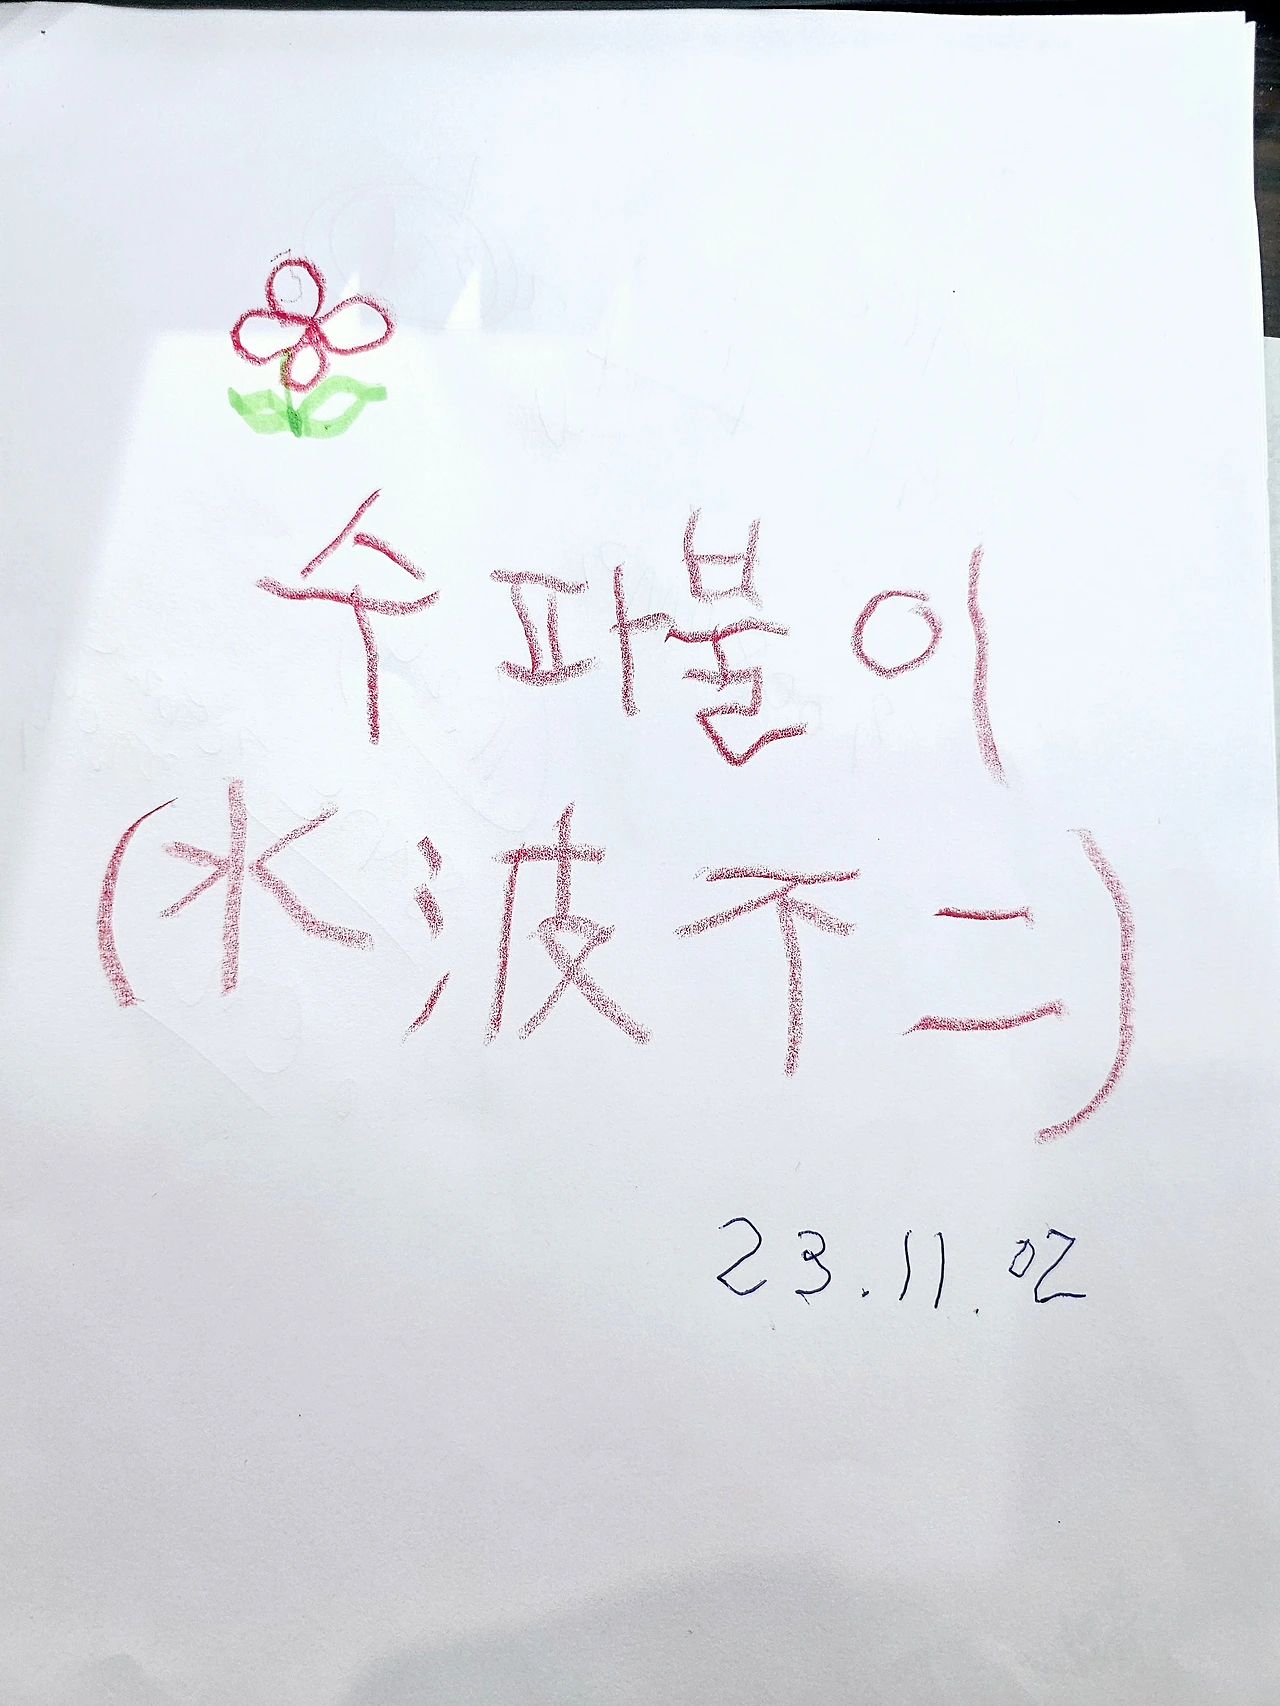 수파불이
(水波不二)
23.11.02